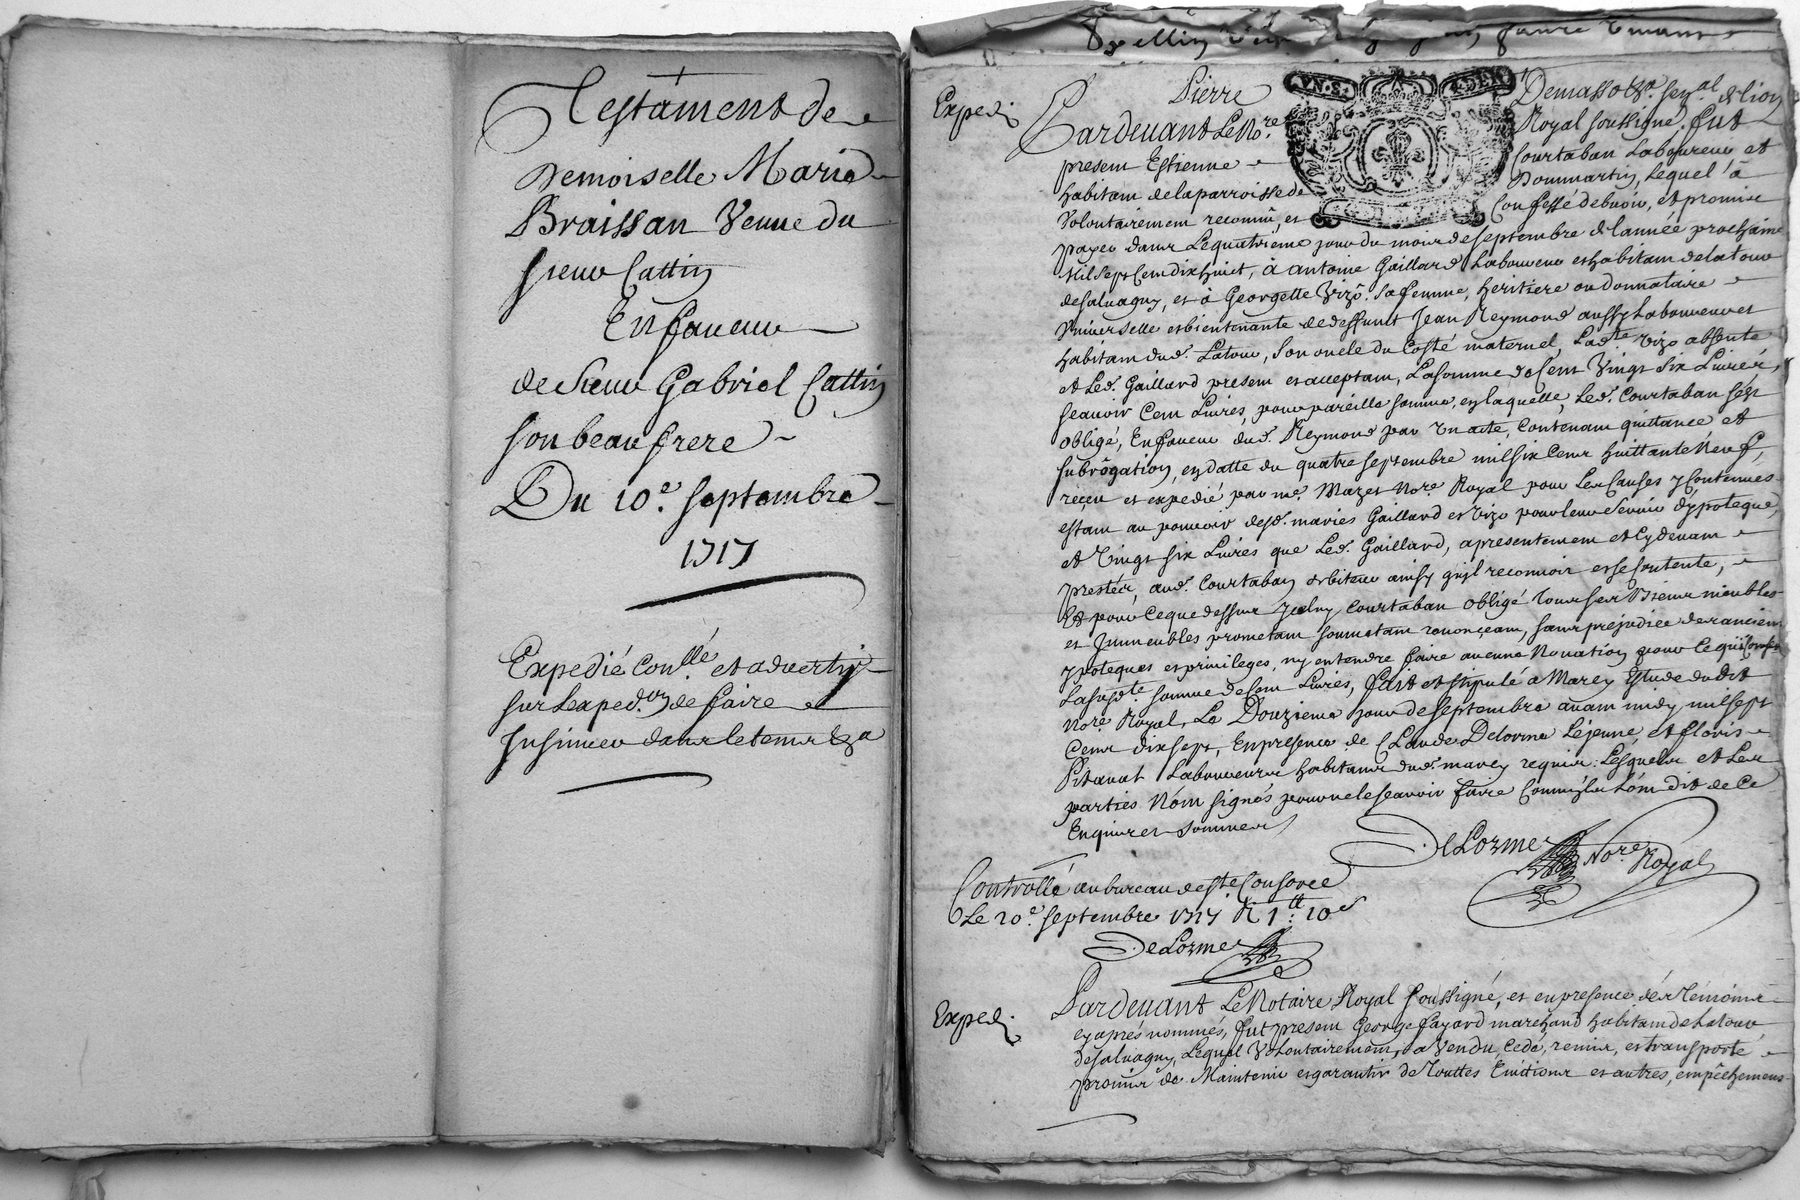 Testament de
Demoiselle Marie
Braissan Veuue du
sieur Cattin
En faueur
de Sieur Gabriel Cattin
son beau frere
Du 10e. septembre
1717
Expedié Conlle. et aduertir
sur lexped.on de faire
Insinuer dans le temps &a
Exped.
Pierre Demasso
Pardeuant Le Nore. Royal soussigné fut
present Estienne Courtaban Laboureur et
habitant de la parroisse de Dommartin, Lequel à
Volontairement reconnû, et Confessé debuoir, et promis
payer dans Le quatrieme jour du mois de septembre de lannée prochaine
Mil sept Cent dix huict, à antoine Gaillard Laboureur et habitant de la tour
de saluagny, et à Georgette Vizo. sa femme, heritiere ou donnataire
Vniverselle et bientenante de deffunct Jean Reymond aussy Laboureur et
habitant dud. Latour, son oncle du Costé maternel, Lade. Vizo absente
et Led. Gaillard present et acceptant, La somme de Cent Vingt Six Livres,
scauoir Cent Livres, pour pareille somme, en laquelle, Led. Courtaban sest
obligé, En faueur dud. Reymond par un acte, Contenant quittance et
subrôgation, en datte du quatre septembre mil six Cent huittante Neuf,
reçeu et expedié par me. Mazet Nore. Royal pour Les Causes y Contenues
estant au pouuoir desd. mariés Gaillard et Vizo pour leur Seruir d'ypoteque,
et Vingt six Livres que Led. Gaillard, a presentement et Cy deuant
prestéz, aud. Courtaban debiteur ainsy quil reconnoit et se Contente,
Et pour Ceque dessus Jceluy Courtaban obligé tous ses Biens meubles
et Jmmeubles promettant soumettant renonçeant, sans prejudice des anciens
ypoteques et priuileges, ny entendre faire aucune Nouation pour Ce qui Conserne
La susde. somme de Cent Livres, fait et stipulé a Marcy Estude dudit
Nore. Royal, Le Douzieme jour de septembre auant midy mil sept
Cent dix sept, En presence de Claude Delorme Lejeune, et floris
Pitaual Laboureurs habitants dud. marcy requis: Lesquels et Les
parties N'ont signés pour ne le scauoir faire Comm'ils L'ont dit de Ce
Enquis et sommés
DeLorme Nore. Royal
Controllé au bureau de ste Consorce
Le 20e. septembre 1717 R 1tt: 10s
DeLorme
Exped.
Pardeuant Le Notaire Royal soussigné, et en presence dés témoins
cy aprés nommés, fut present George fayard marchand habitant de Latour
de saluagny, Lequel Volontairement, a Vendu, Cedé, remis, et transporté
promis de Maintenir et garantir de Touttes Euictions et autres, empêchemens